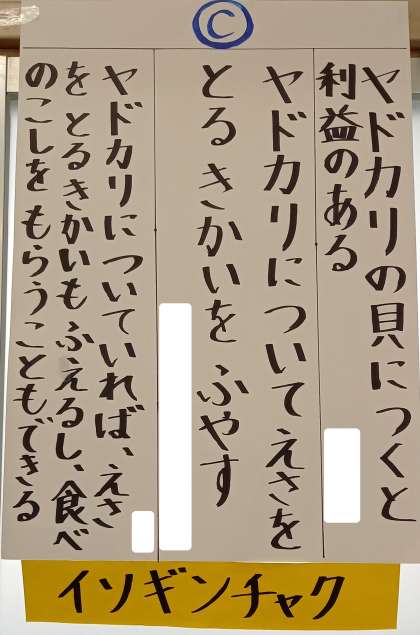 Ⓒ
ヤドカリの貝につくと
利益のある
ヤドカリについてえさを
とるきかいを ふやす
ヤドカリについていれば、えさ
をとるきかいもふえるし、食べ
のこしをもらうこともできる
イソギンチャク